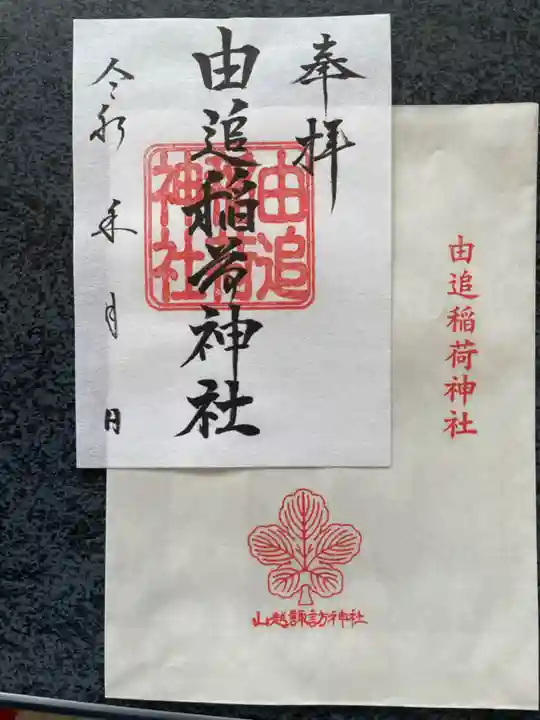 奉拝
由追稲荷神社
令和 年 月 日
由追
稲荷
神社
由追稲荷神社
山越諏訪神社